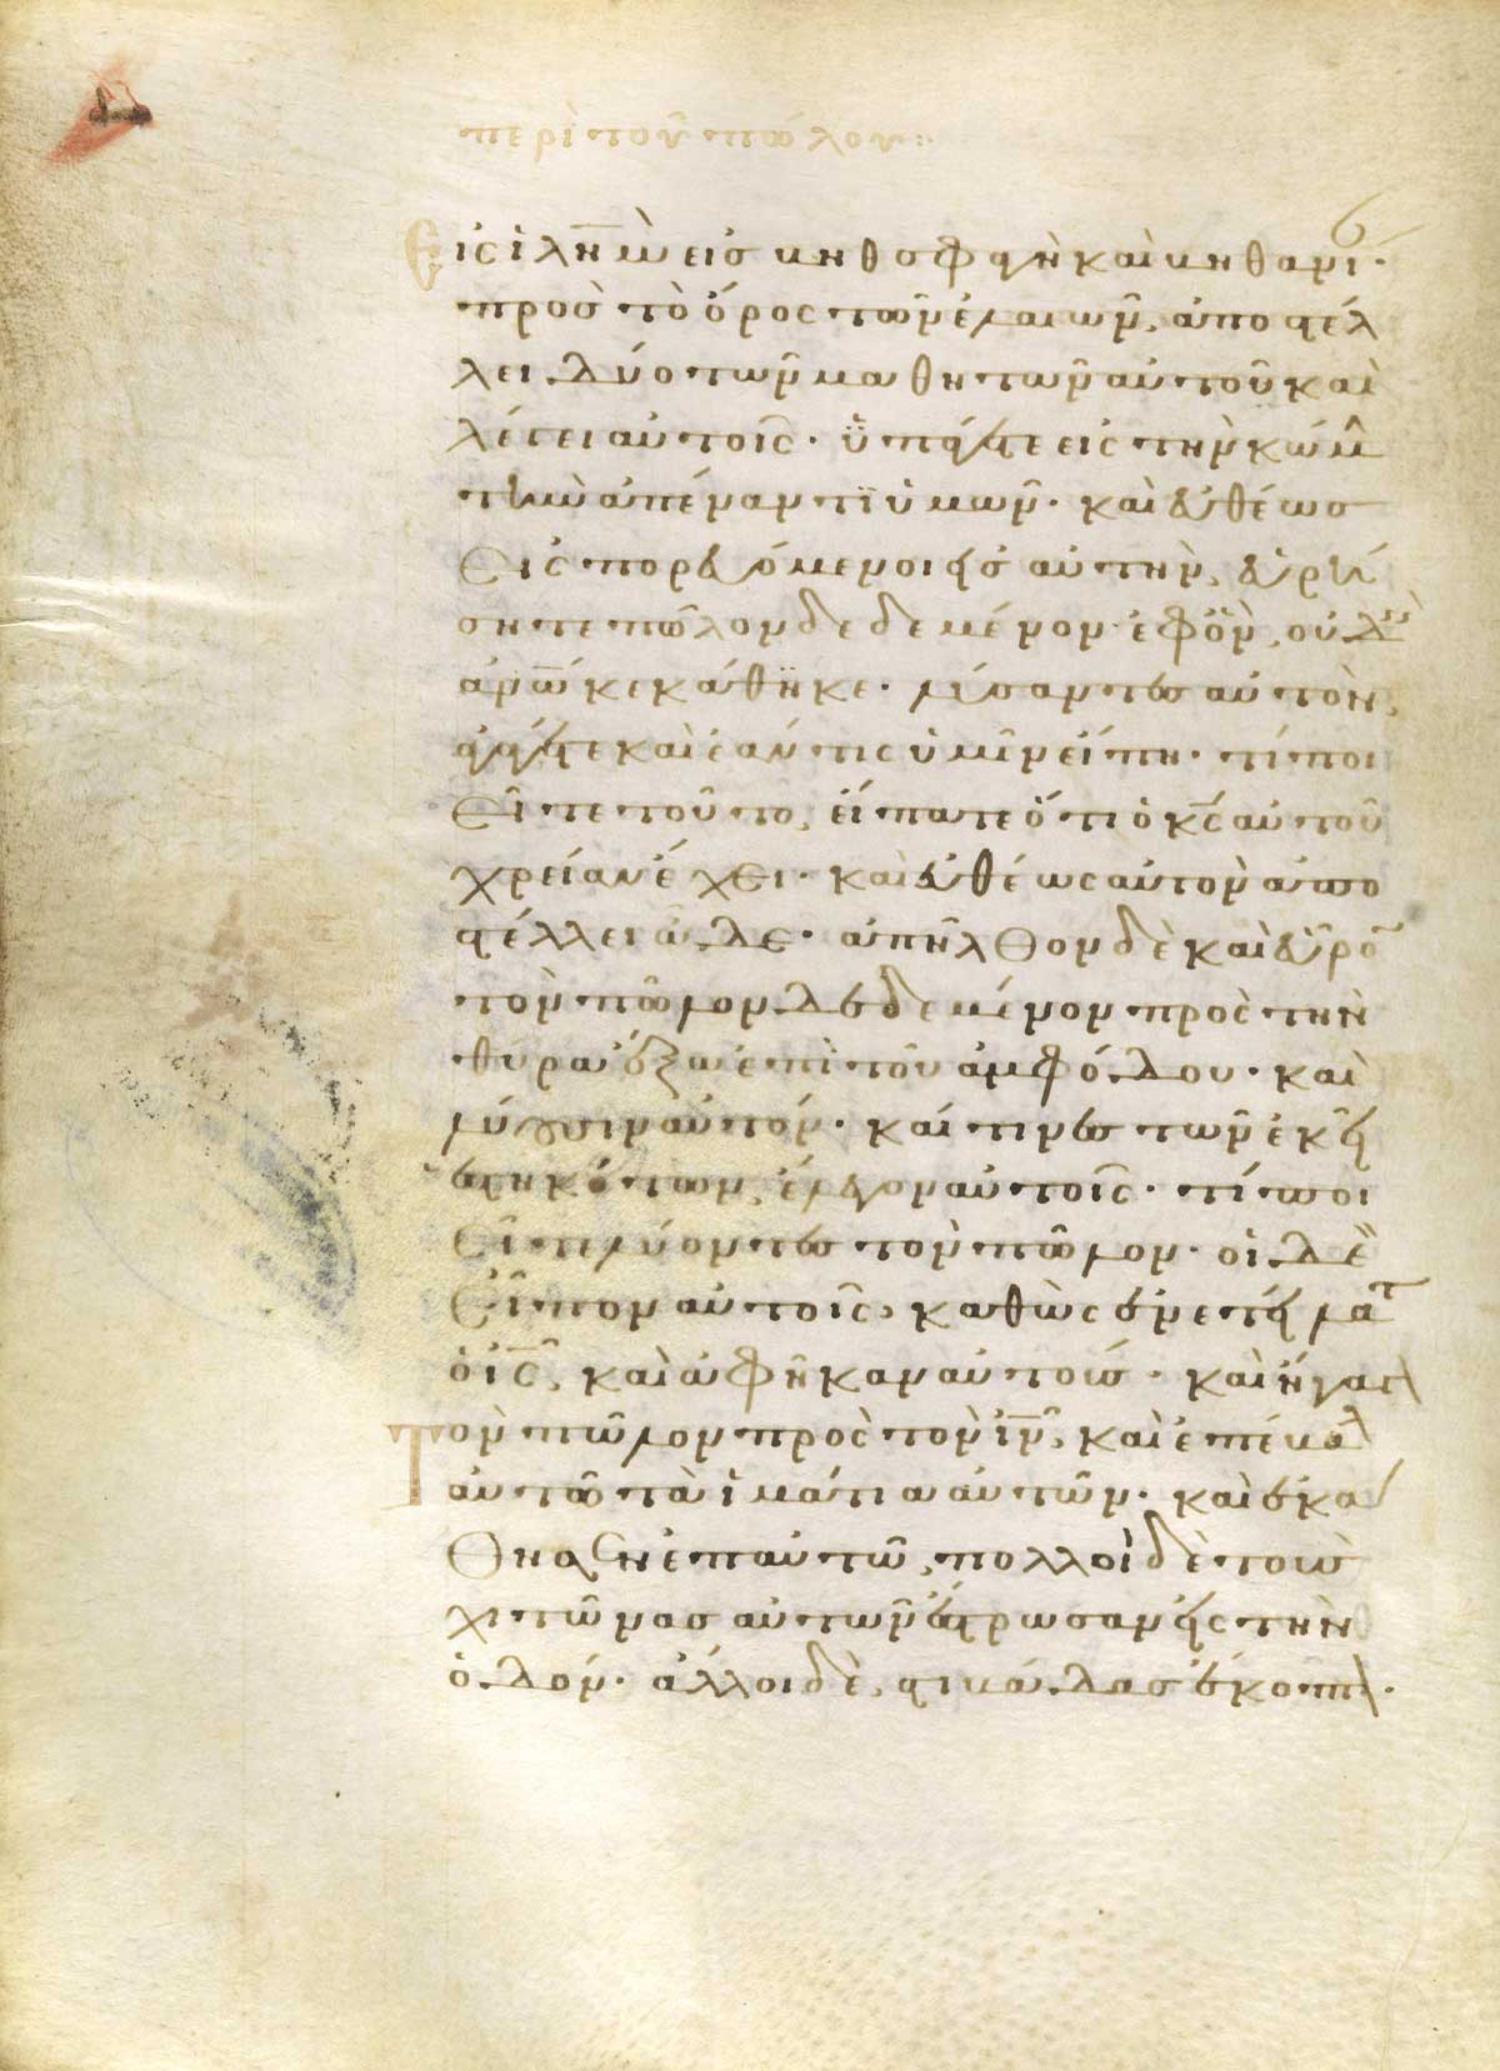 περὶ τοῦ πώλου:
Εἰς ἰλῆμ εἰσ βηθσφαγὴ καὶ βηθανί·
προσ τὸ ὄρος τῶν ἐλαιῶν, ἀποστέλ
λει δύο τῶν μαθητῶν αὐτοῦ καὶ
λέγει αὐτοῖς· ὑπάγετε εἰς τὴν κώμ
τὴν ἀπέναντι ὑμῶν· καὶ εὐθέωσ
εἰςπορευόμενοι εἰσ αὐτὴν, εὑρή
σητε πῶλον δεδεμένον ἐφ ὃν, οὐδεὶσ
ἀνῶν κεκάθηκε· λύσαντεσ αὐτὸν,
ἀγάγετε καὶ ἐάν τις ὑμῖν εἴπη· τί ποι
εῖτε τοῦτο, εἴπατε ὅτι ὁ κς αὐτοῦ
χρείαν ἔχει· καὶ εὐθέως αὐτὸν ἀπο
στέλλει ὧδε· ἀπῆλθον δὲ καὶ εὗρο
τὸν πῶλον δεδεμένον πρὸς τὴν
θύραν ἔξω ἐπὶ τοῦ ἀμφόδου· καὶ
λύουσιν αὐτόν· καί τινεσ τῶν ἐκεῖ
ἑστηκότων, ἔλεγον αὐτοῖς· τί ποι
εῖτε λύοντεσ τὸν πῶλον· οἱ δὲ
εἶπον αὐτοῖς, καθὼς ἐνετείλατ
ὁ ις, καὶ ἀφῆκαν αὐτούσ· καὶ ἤγαγ
Τὸν πῶλον πρὸς τὸν ιν, καὶ ἐπέβαλ
αὐτῶ τὰ ἱμάτια αὐτῶν· καὶ ἐκα
θησεν ἐπ αὐτῶ, πολλοὶ δὲ τοὺσ
χιτῶνασ αὐτῶν ἔστρωσαν εἰς τὴν
ὁδόν· ἄλλοι δὲ, στιβάδασ ἔκοπτ·